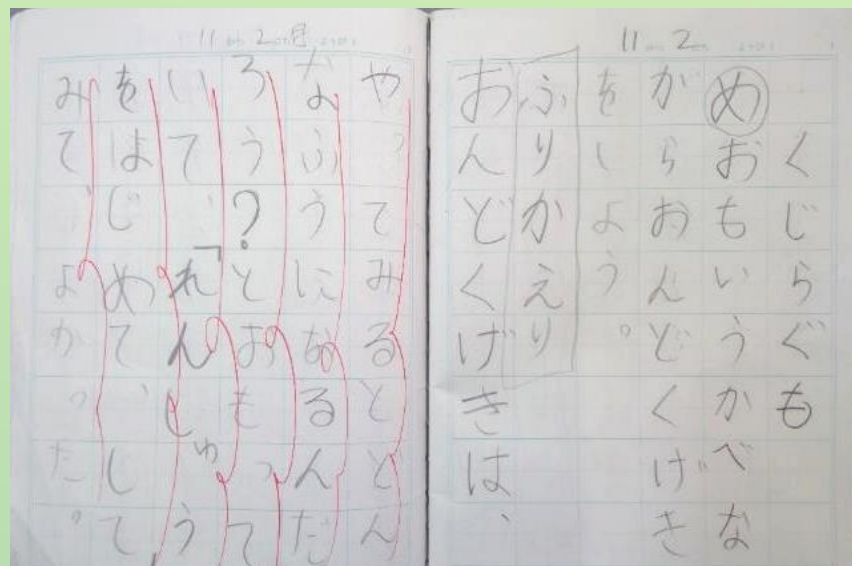 11 2
くじらぐも
めおもいうかべな
がらおんどくげき
をしよう。
ふりかえり
おんどくげきは、
11 2 月
やってみるとどん
なふうになるんだ
ろう?とおもって
いて、「れんしゅう
をはじめて、して
みて、よかった。